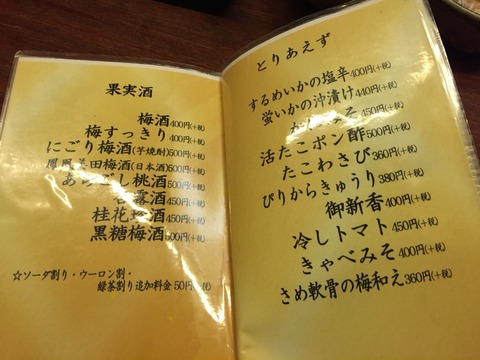 果実酒
梅酒400円(+税)
梅すっきり400円(+税)
にごり梅酒(芋焼酎)500円(+税)
鳳凰美田梅酒(日本酒)500円(+税)
あらごし桃酒500円(+税)
杏露酒450円(+税)
桂花陳酒450円(+税)
黒糖梅酒500円(+税)
☆ソーダ割り・ウーロン割・
緑茶割り追加料金 50円(+税)
とりあえず
するめいかの塩辛400円(+税)
蛍いかの沖漬け440円(+税)
かにみそ450円(+税)
活たこポン酢500円(+税)
たこわさび360円(+税)
ぴりからきゅうり380円(+税)
御新香400円(+税)
冷しトマト450円(+税)
きゃべみそ400円(+税)
さめ軟骨の梅和え360円(+税)